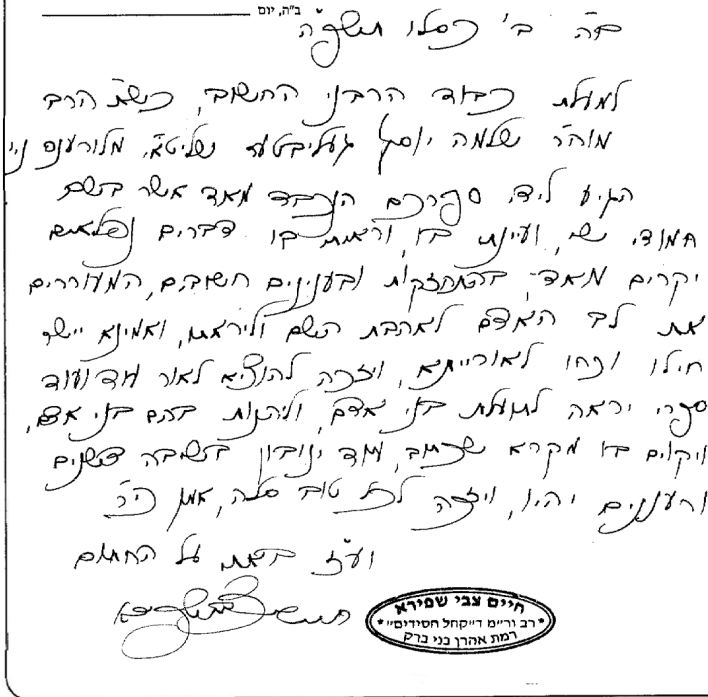 ב"ה, יום
בס"ד ב' כסלו תשפ"ה
למעלת כבוד הרבני החשוב, כש"ת הרב
מוהר"ר שלמה יוסף געליבטער שליט"א, מלורענס נ"י
הגיע לידי ספרכם הנכבד מאד אשר בשם
חמודי שי, ועיינתי בו, וראיתי בו דברים נפלאים
יקרים מאד, בהתחזקות ובענינים חשובים, המעוררים
את לב האדם לאהבת השם וליראתו, ואמינא יישר
חילו וכחו לאורייתא, ויזכה להוציא לאור עוד ועוד
ספרי יראה לתועלת בני אדם, וליהנות בהם בני אדם,
ויקוים בו מקרא שכתוב, עוד ינובון בשיבה דשנים
ורעננים יהיו, ויזכה לכל טוב סלה, אמן כי"ר
ועז"ב באתי על החתום
חיים צבי שפירא
חיים צבי שפירא
רב ור"מ ד"קהל חסידים"
רמת אהרן בני ברק